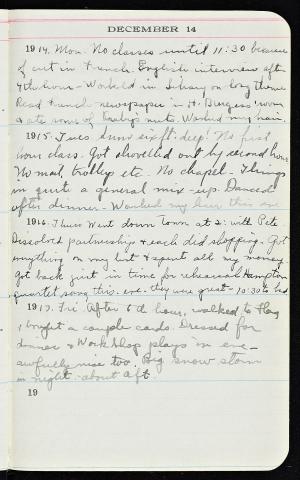 DECEMBER 14
1914. Mon. No classes until 11:30 because
of cut in French. English interview after
4th hour - Worked in Library on long theme
Read French newspaper in H. Burgess' room
& ate some of nuts. Washed my hair.
1915. Tues. Snow six ft. deep! No first
hour class. Got shovelled out by second hour
No mail, trolleys etc. No chapel - Things
in quite a general mix-up. Danced
after dinner - Washed my hair this eve
1916. Thurs Went down town at 2: with Pete
Dissolved partnership & each did shopping. Got
everything on my list & spent all my money.
Got back just in time for rehearsal Hampton
quartet sang this eve. they were great - 10:30 to bed
1917. Fri. After 6th hour, walked to
& bought a couple cards. Dressed for
dinner & Workshop plays in eve -
awfully nice too. Big snow storm
in night - about a ft.
19